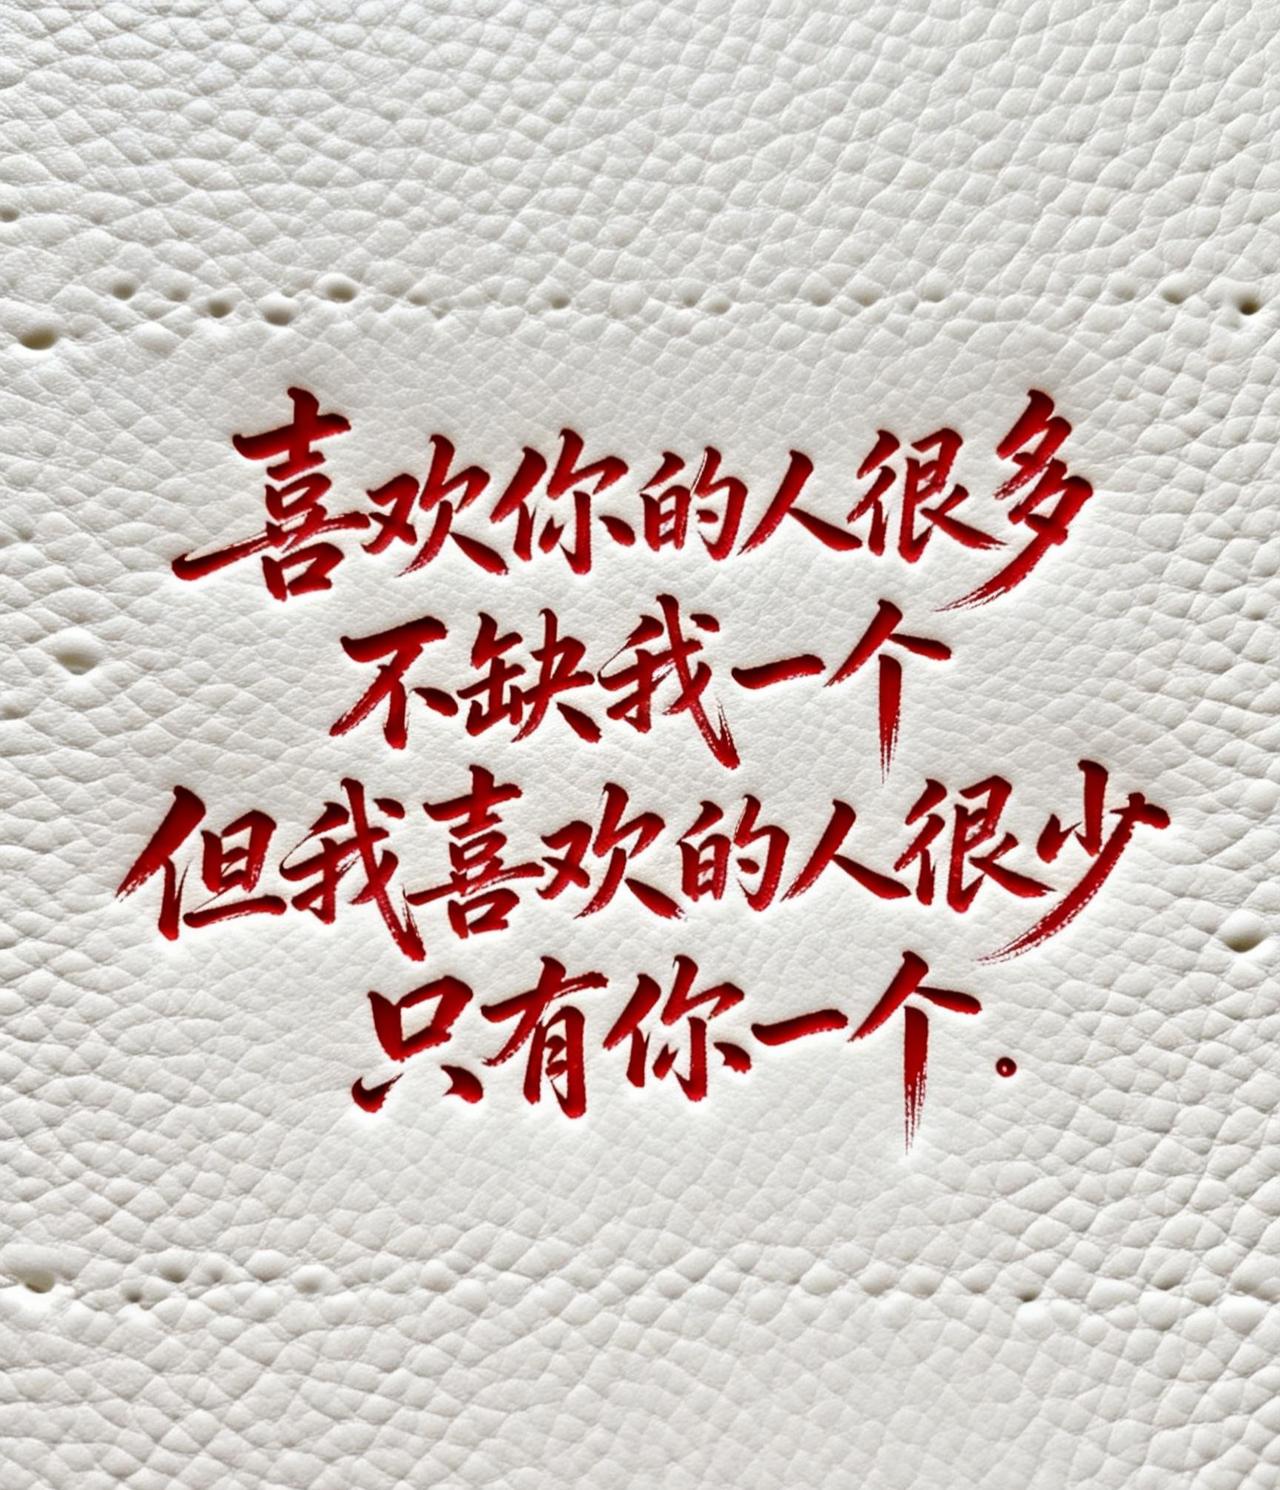 喜欢你的人很多
不缺我一个
但我喜欢的人很少
只有你一个.